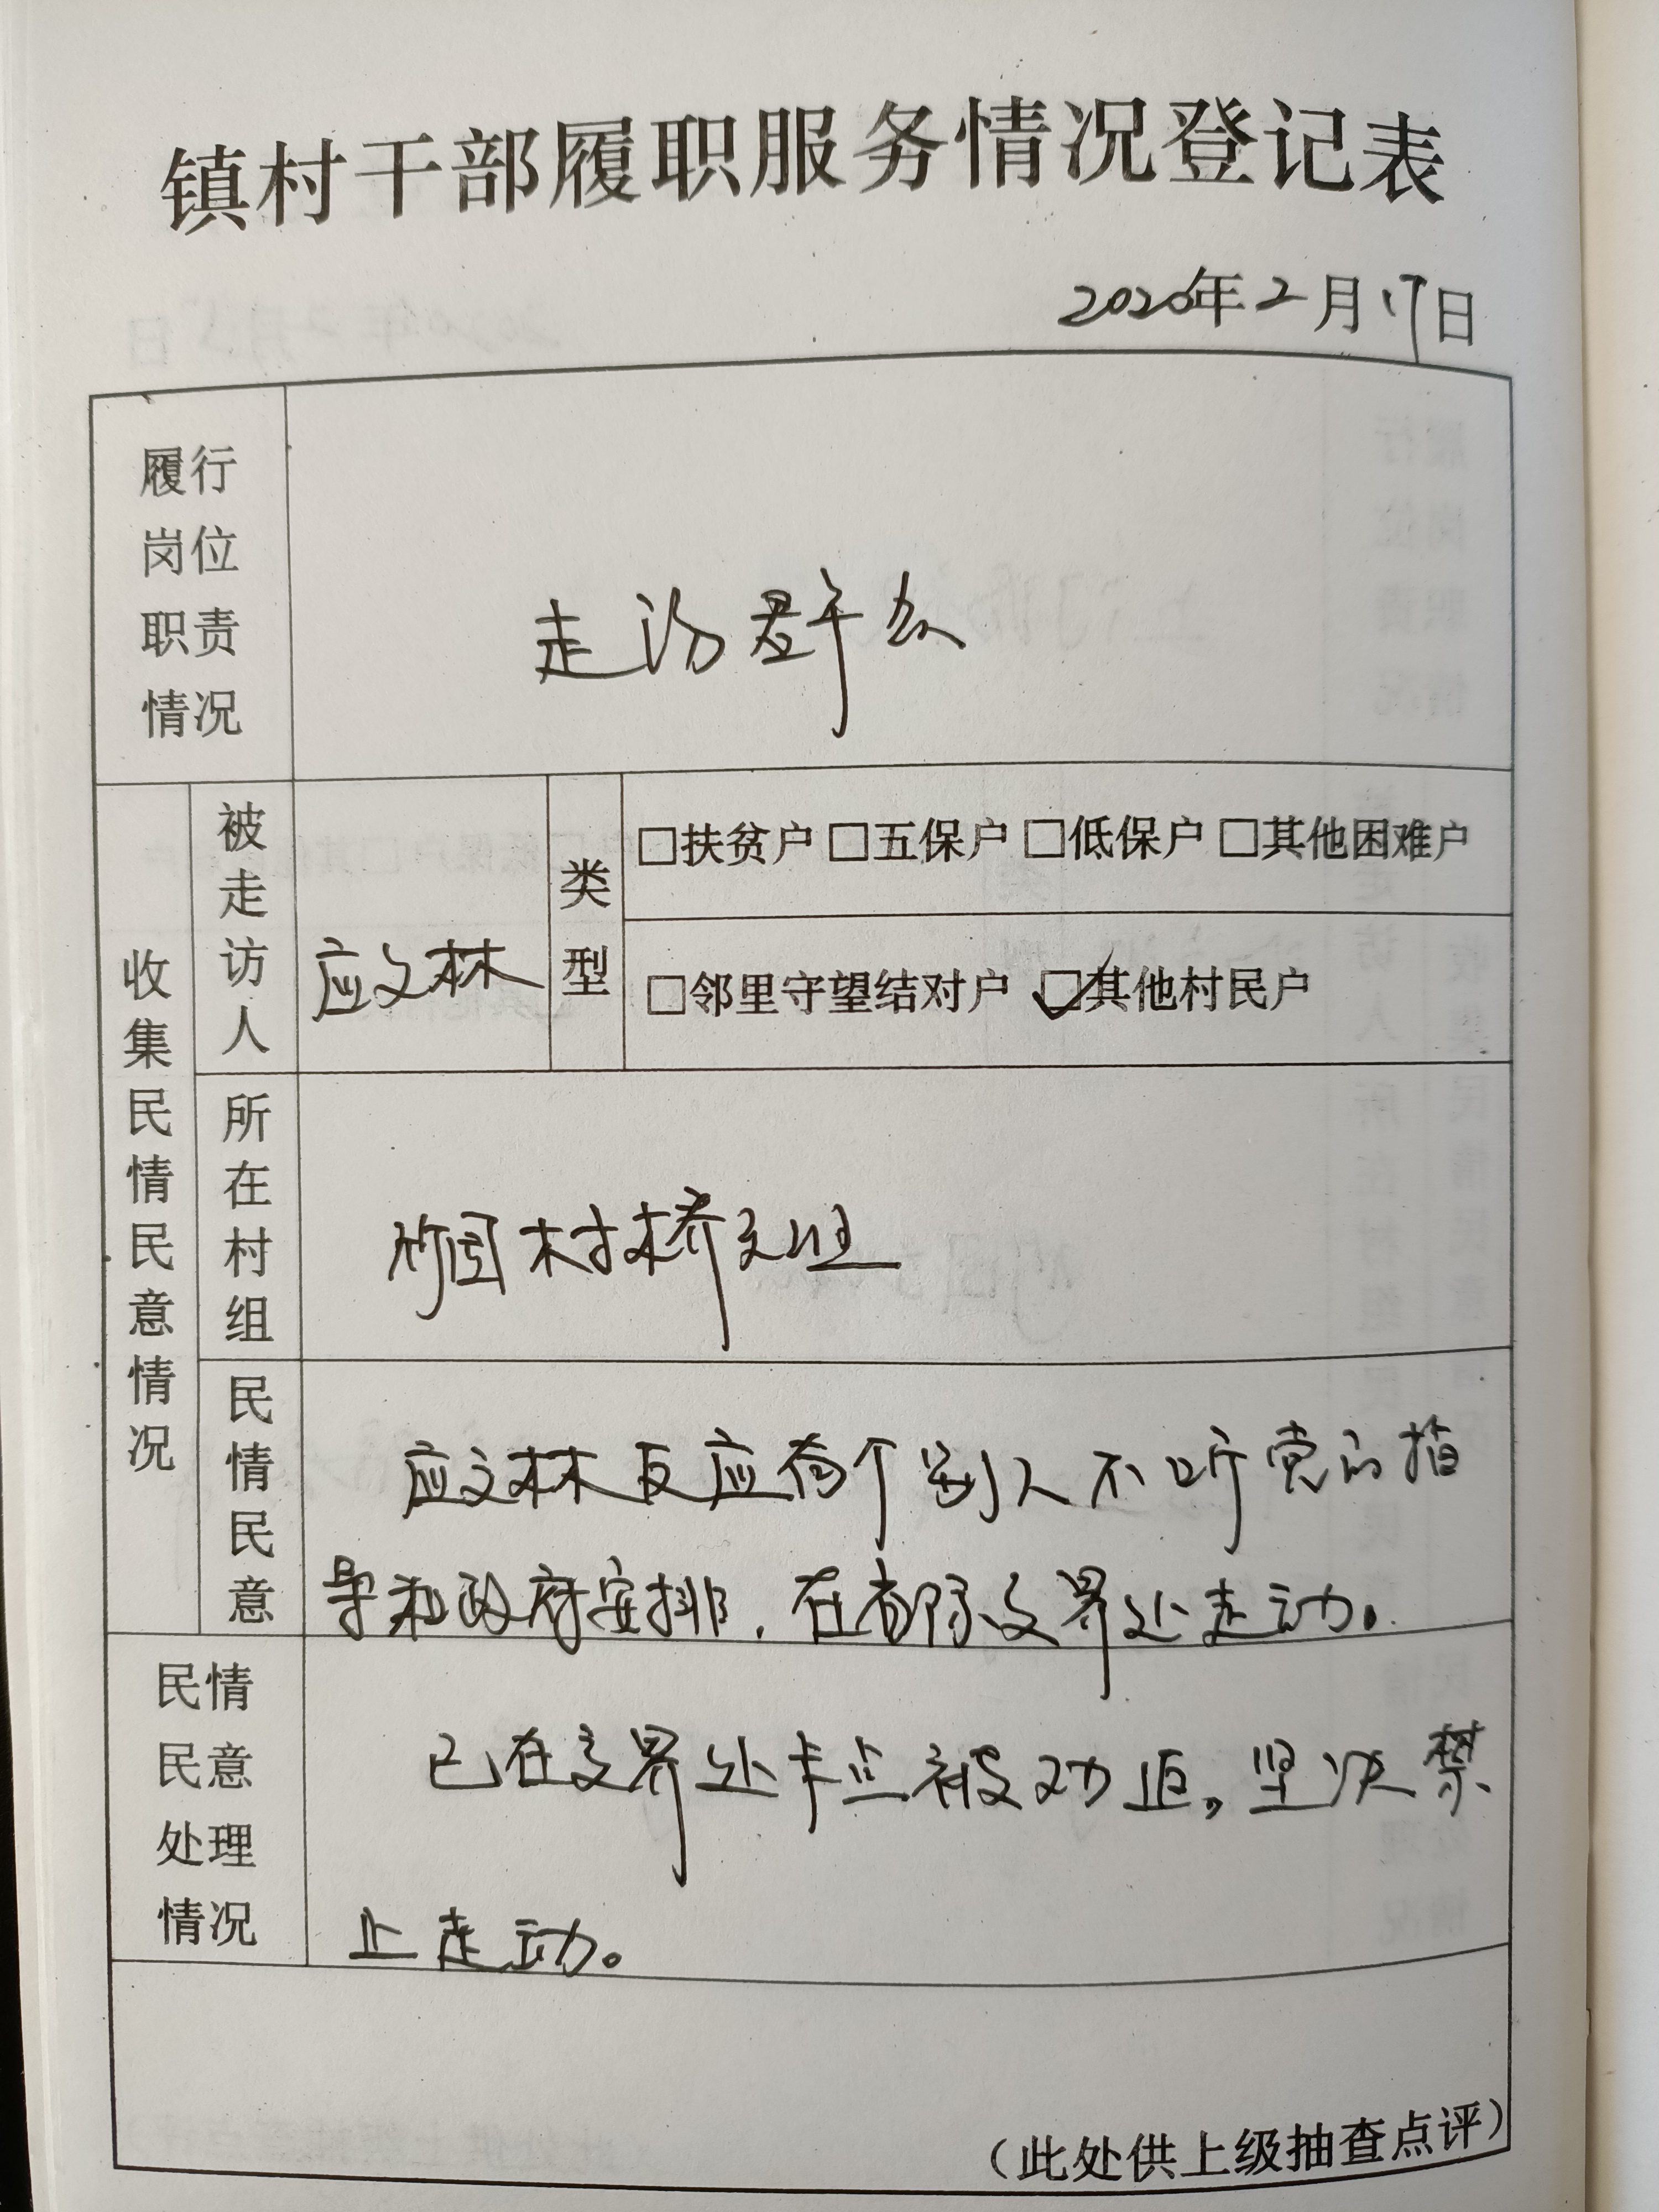 镇村干部履职服务情况登记表
2020年2月17日
履行
岗位
职责
情况
走访群众
收集民情民意情况
被走访人
应文林
类型
□扶贫户 □五保户 □低保户 □其他困难户
□邻里守望结对户 ☑其他村民户
所在村组
竹园村桥文组
民情民意
应文林反应有个别人不听党的指
导和政府安排,在交界处走动。
民情
民意
处理
情况
已在交界处卡点被劝返,坚决禁
止走动。
(此处供上级抽查点评)